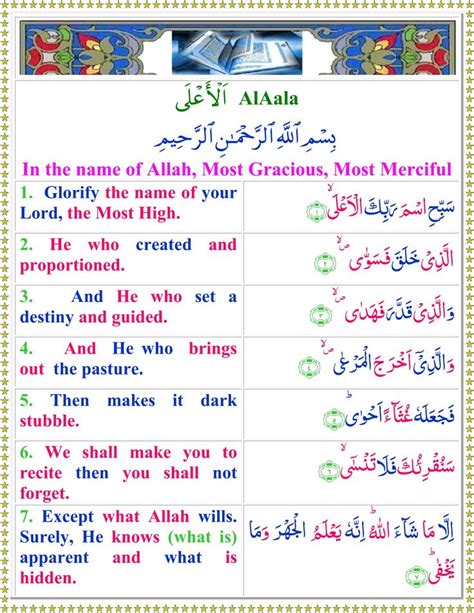 اَلْأَعْلَى AlAala
بِسْمِ ٱللَّهِ ٱلرَّحْمَـٰنِ ٱلرَّحِيمِ
In the name of Allah, Most Gracious, Most Merciful
1. Glorify the name of your
Lord, the Most High.
سَبِّحِ اسْمَ رَبِّكَ الْاَعْلَىۙ ۱
2. He who created and
proportioned.
الَّذِيْ خَلَقَ فَسَوّٰى ۪ۙ ۲
3. And He who set a
destiny and guided.
وَالَّذِيْ قَدَّرَ فَهَدٰى ۪ۙ ۳
4. And He who brings
out the pasture.
وَالَّذِيْۤ اَخْرَجَ الْمَرْعٰى ۪ۙ ۴
5. Then makes it dark
stubble.
فَجَعَلَهٗ غُثَآءً اَحْوٰىؕ ۵
6. We shall make you to
recite then you shall not
forget.
سَنُقْرِئُكَ فَلَا تَنْسٰۤىۙ ۶
7. Except what Allah wills.
Surely, He knows (what is)
apparent and what is
hidden.
اِلَّا مَا شَآءَ اللّٰهُؕ اِنَّهٗ يَعْلَمُ الْجَهْرَ وَمَا
يَخْفٰىؕ ۷